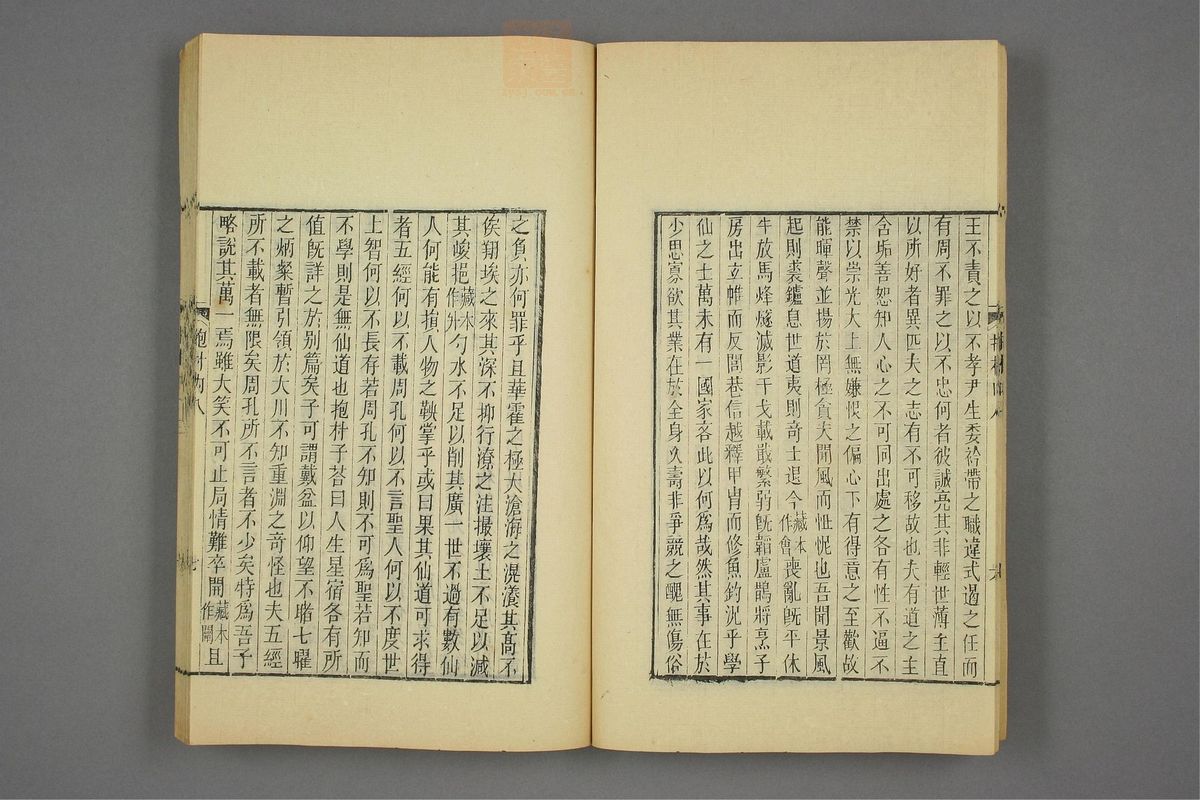 王不責之以不孝尹生委衿帶之職違式遏之任而
有周不罪之以不忠何者彼誠亮其非輕世薄主直
以所好者異匹夫之志有不可移故也夫有道之主
含垢善恕知人心之不可同出處之各有性不逼不
禁以崇光大上無嫌恨之偏心下有得意之至歡故
能暉聲並揚於罔極貪夫聞風而忸怩也吾聞景風
起則裘鑪息世道夷則奇士退今藏本作會喪亂旣平休
牛放馬烽燧滅影干戈載戢繁弱旣韜盧鵲將烹子
房出立帷而反閭巷信越釋甲胄而修魚釣況乎學
仙之士萬未有一國家吝此以何爲哉然其事在於
少思寡欲其業在於全身久壽非爭競之醜無傷俗
之負亦何罪乎且華霍之極大滄海之滉瀁其高不
俟翔埃之來其深不抑行潦之注撮壤土不足以減
其峻挹藏本作升勺水不足以削其廣一世不過有數仙
人何能有損人物之鞅掌乎或曰果其仙道可求得
者五經何以不載周孔何以不言聖人何以不度世
上智何以不長存若周孔不知則不可爲聖若知而
不學則是無仙道也抱朴子荅曰人生星宿各有所
值旣詳之於別篇矣子可謂戴盆以仰望不睹七曜
之炳粲暫引領於大川不知重淵之奇怪也夫五經
所不載者無限矣周孔所不言者不少矣特爲吾子
略說其萬一焉雖大笑不可止局情難卒開藏本作闓且
抱朴內八